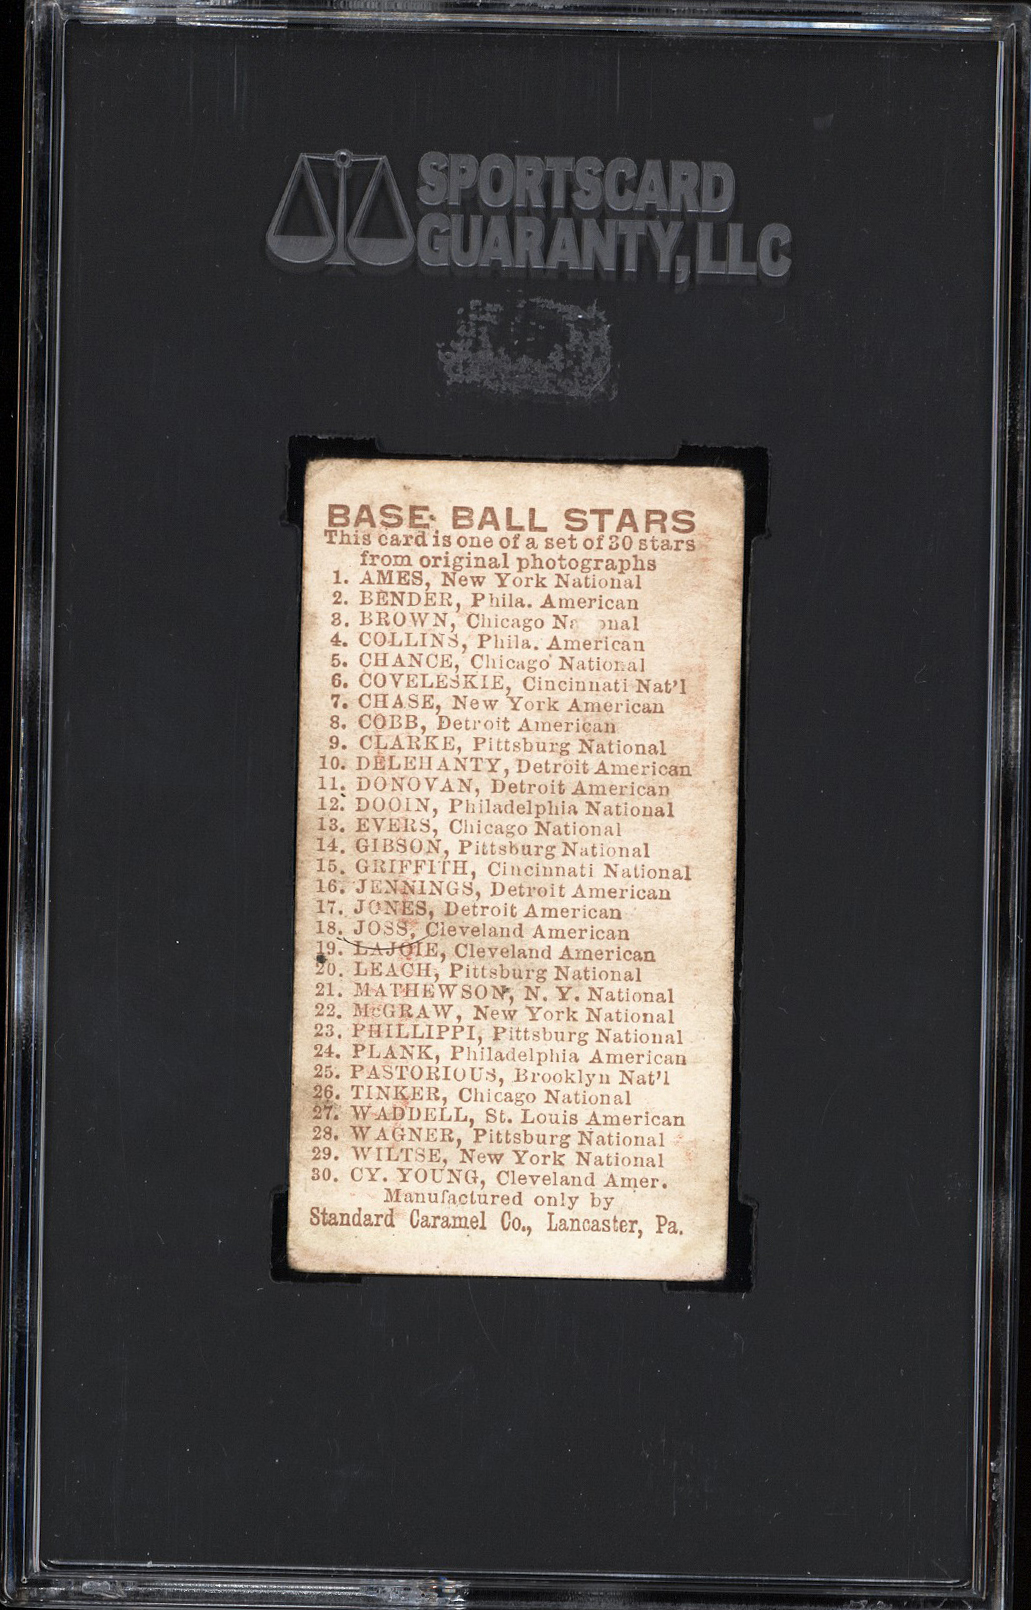 SPORTSCARD
GUARANTY, LLC
BASE BALL STARS
This card is one of a set of 30 stars
from original photographs
1. AMES, New York National
2. BENDER, Phila. American
3. BROWN, Chicago Na onal
4. COLLINS, Phila. American
5. CHANCE, Chicago National
6. COVELESKIE, Cincinnati Nat'l
7. CHASE, New York American
8. COBB, Detroit American
9. CLARKE, Pittsburg National
10. DELEHANTY, Detroit American
11. DONOVAN, Detroit American
12. DOOIN, Philadelphia National
13. EVERS, Chicago National
14. GIBSON, Pittsburg National
15. GRIFFITH, Cincinnati National
16. JENNINGS, Detroit American
17. JONES, Detroit American
18. JOSS, Cleveland American
19. LAJOIE, Cleveland American
20. LEACH, Pittsburg National
21. MATHEWSON, N. Y. National
22. McGRAW, New York National
23. PHILLIPPI, Pittsburg National
24. PLANK, Philadelphia American
25. PASTORIOUS, Brooklyn Nat'l
26. TINKER, Chicago National
27. WADDELL, St. Louis American
28. WAGNER, Pittsburg National
29. WILTSE, New York National
30. CY. YOUNG, Cleveland Amer.
Manufactured only by
Standard Caramel Co., Lancaster, Pa.